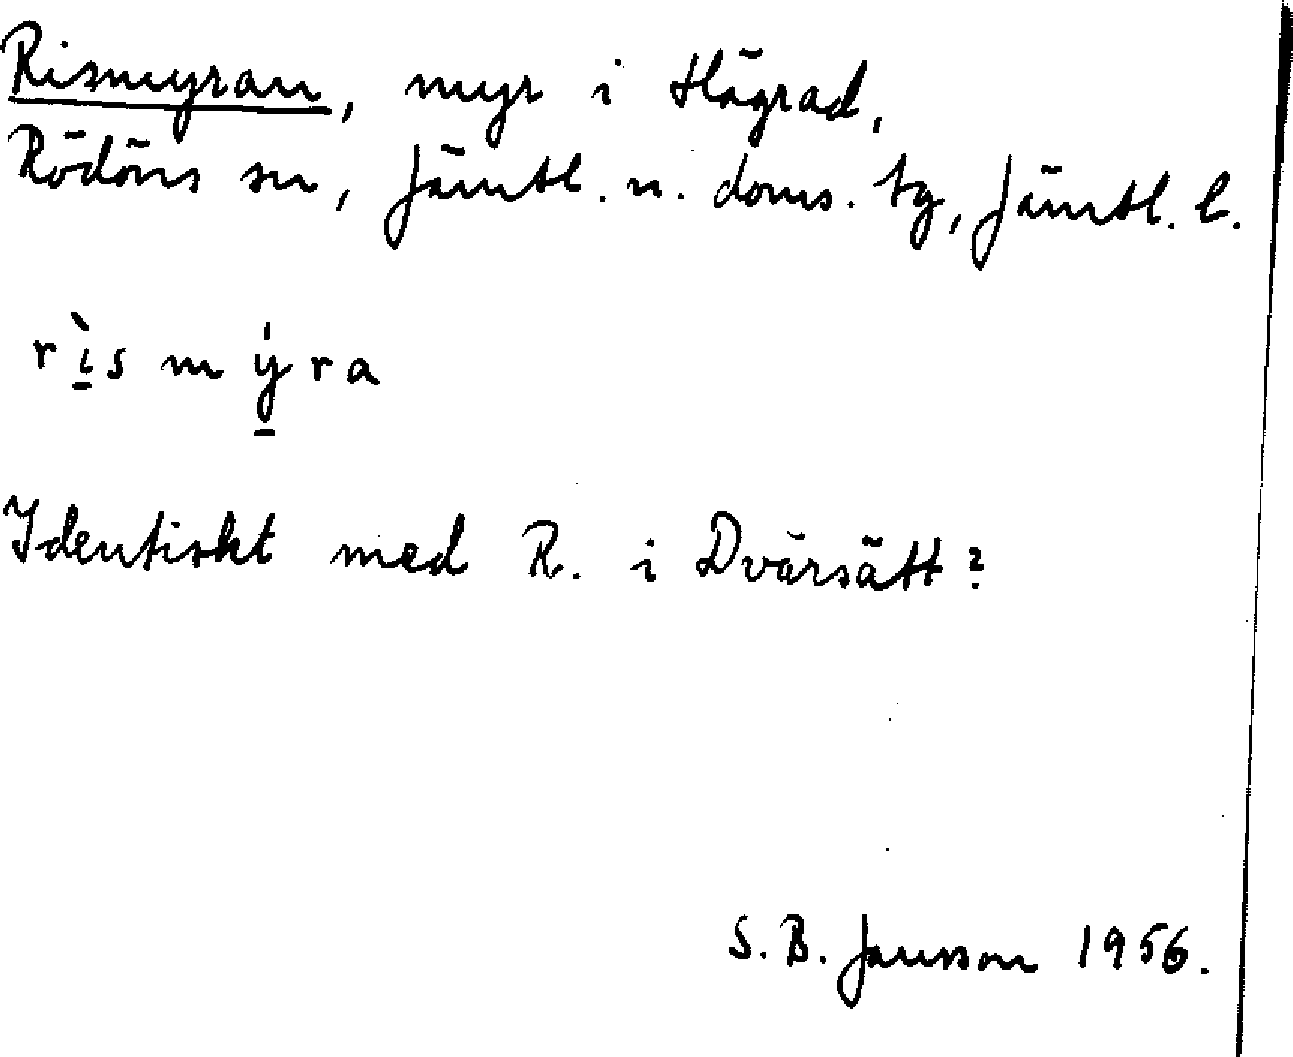 Rismyran, myr i Hägrad,
Rödöns sn, Jämtl. n. doms. tg, Jämtl. l.
rı̱̀s mý̱ra
Identiskt med R. i Dvärsätt?
S. B. Jansson 1956.